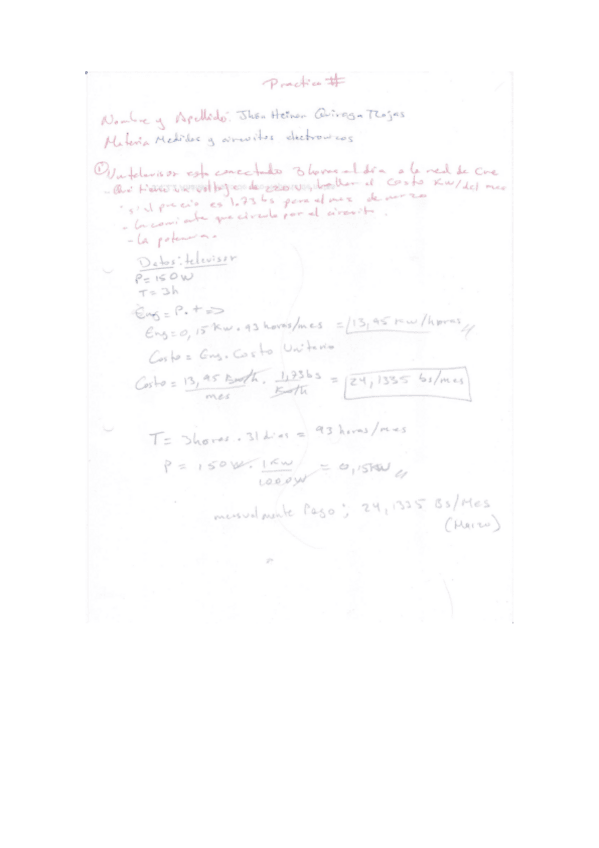 Practica #
Nombre y Apellido: Jhon Heinar Quiroga Rojas
Materia Medidas y circuitos electronicos
① Un televisor esta conectado 3 horas al día a la red de Cre
- Que tiene un voltaje de 220 v, hallar el Costo Kw/del mes
si el precio es 1,73 bs para el mes de marzo
- La corriente que circula por el circuito.
- La potencia.
Datos: televisor
P = 150 W
T = 3h
Eng = P . t =>
Eng = 0,15 Kw . 93 horas/mes = 13,95 Kw/horas
Costo = Eng . Costo Unitario
Costo = 13,95 Kw/h / mes . 1,73 bs / Kw/h = 24,1335 bs/mes
T = 3horas . 31 dias = 93 horas/mes
P = 150 W . 1 Kw / 1000W = 0,15 KW
mensualmente Pago: 24,1335 Bs/Mes
(Marzo)